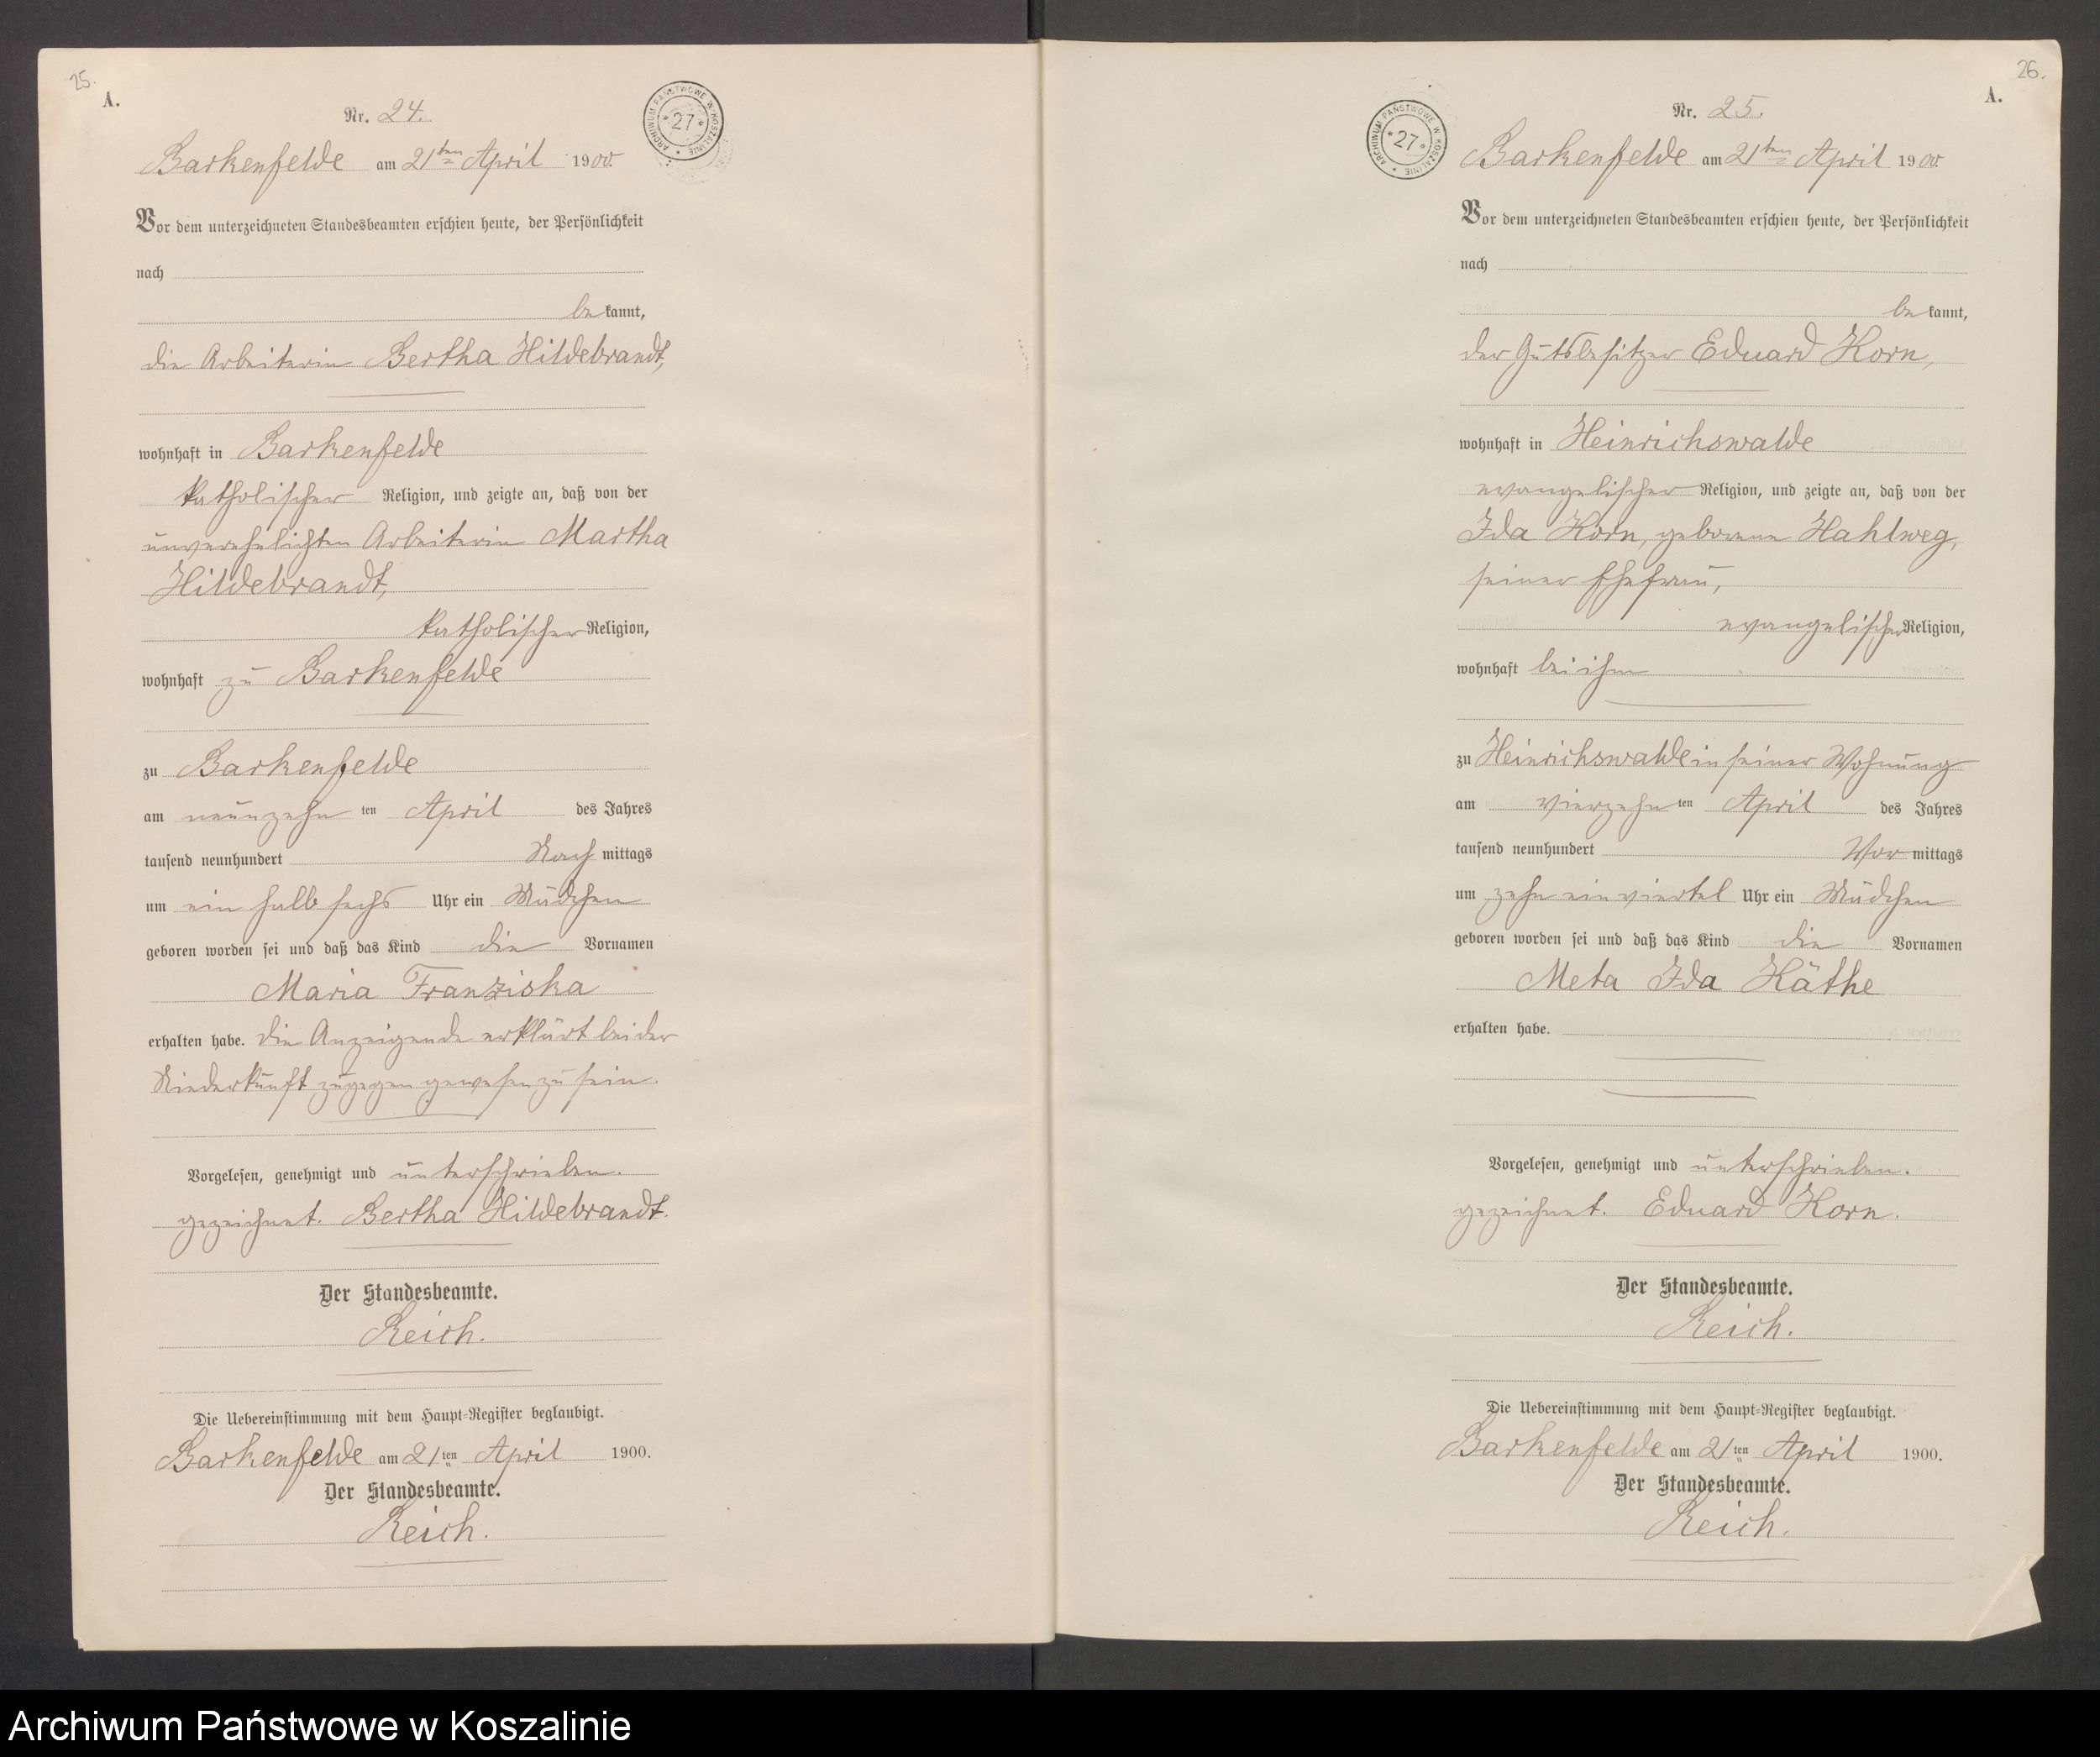 25.
A.
Nr. 24.
ARCHIWUM PAŃSTWOWE W KOSZALINIE * 27 *
Barkenfelde am 21ten April 1900.
Vor dem unterzeichneten Standesbeamten erschien heute, der Persönlichkeit
nach
bekannt,
die Arbeiterin Bertha Hildebrandt,
wohnhaft in Barkenfelde
katholischer Religion, und zeigte an, daß von der
unverehelichten Arbeiterin Martha
Hildebrandt,
katholischer Religion,
wohnhaft zu Barkenfelde
zu Barkenfelde
am neunzehn ten April des Jahres
tausend neunhundert Nachmittags
um ein halb sechs Uhr ein Mädchen
geboren worden sei und daß das Kind die Vornamen
Maria Franziska
erhalten habe. Die Anzeigende erklärt bei der
Niederkunft zugegen gewesen zu sein.
Vorgelesen, genehmigt und unterschrieben.
gezeichnet. Bertha Hildebrandt.
Der Standesbeamte.
Reich.
Die Uebereinstimmung mit dem Haupt-Register beglaubigt.
Barkenfelde am 21ten April 1900.
Der Standesbeamte.
Reich.
26.
A.
Nr. 25.
ARCHIWUM PAŃSTWOWE W KOSZALINIE * 27 *
Barkenfelde am 21ten April 1900.
Vor dem unterzeichneten Standesbeamten erschien heute, der Persönlichkeit
nach
bekannt,
der Gutsbesitzer Eduard Korn,
wohnhaft in Heinrichswalde
evangelischer Religion, und zeigte an, daß von der
Ida Korn, geborene Hahlweg,
seiner Ehefrau,
evangelischer Religion,
wohnhaft bei ihm
zu Heinrichswalde in seiner Wohnung
am vierzehn ten April des Jahres
tausend neunhundert Vormittags
um zehn ein viertel Uhr ein Mädchen
geboren worden sei und daß das Kind die Vornamen
Meta Ida Käthe
erhalten habe.
Vorgelesen, genehmigt und unterschrieben.
gezeichnet. Eduard Korn.
Der Standesbeamte.
Reich.
Die Uebereinstimmung mit dem Haupt-Register beglaubigt.
Barkenfelde am 21ten April 1900.
Der Standesbeamte.
Reich.
Archiwum Państwowe w Koszalinie